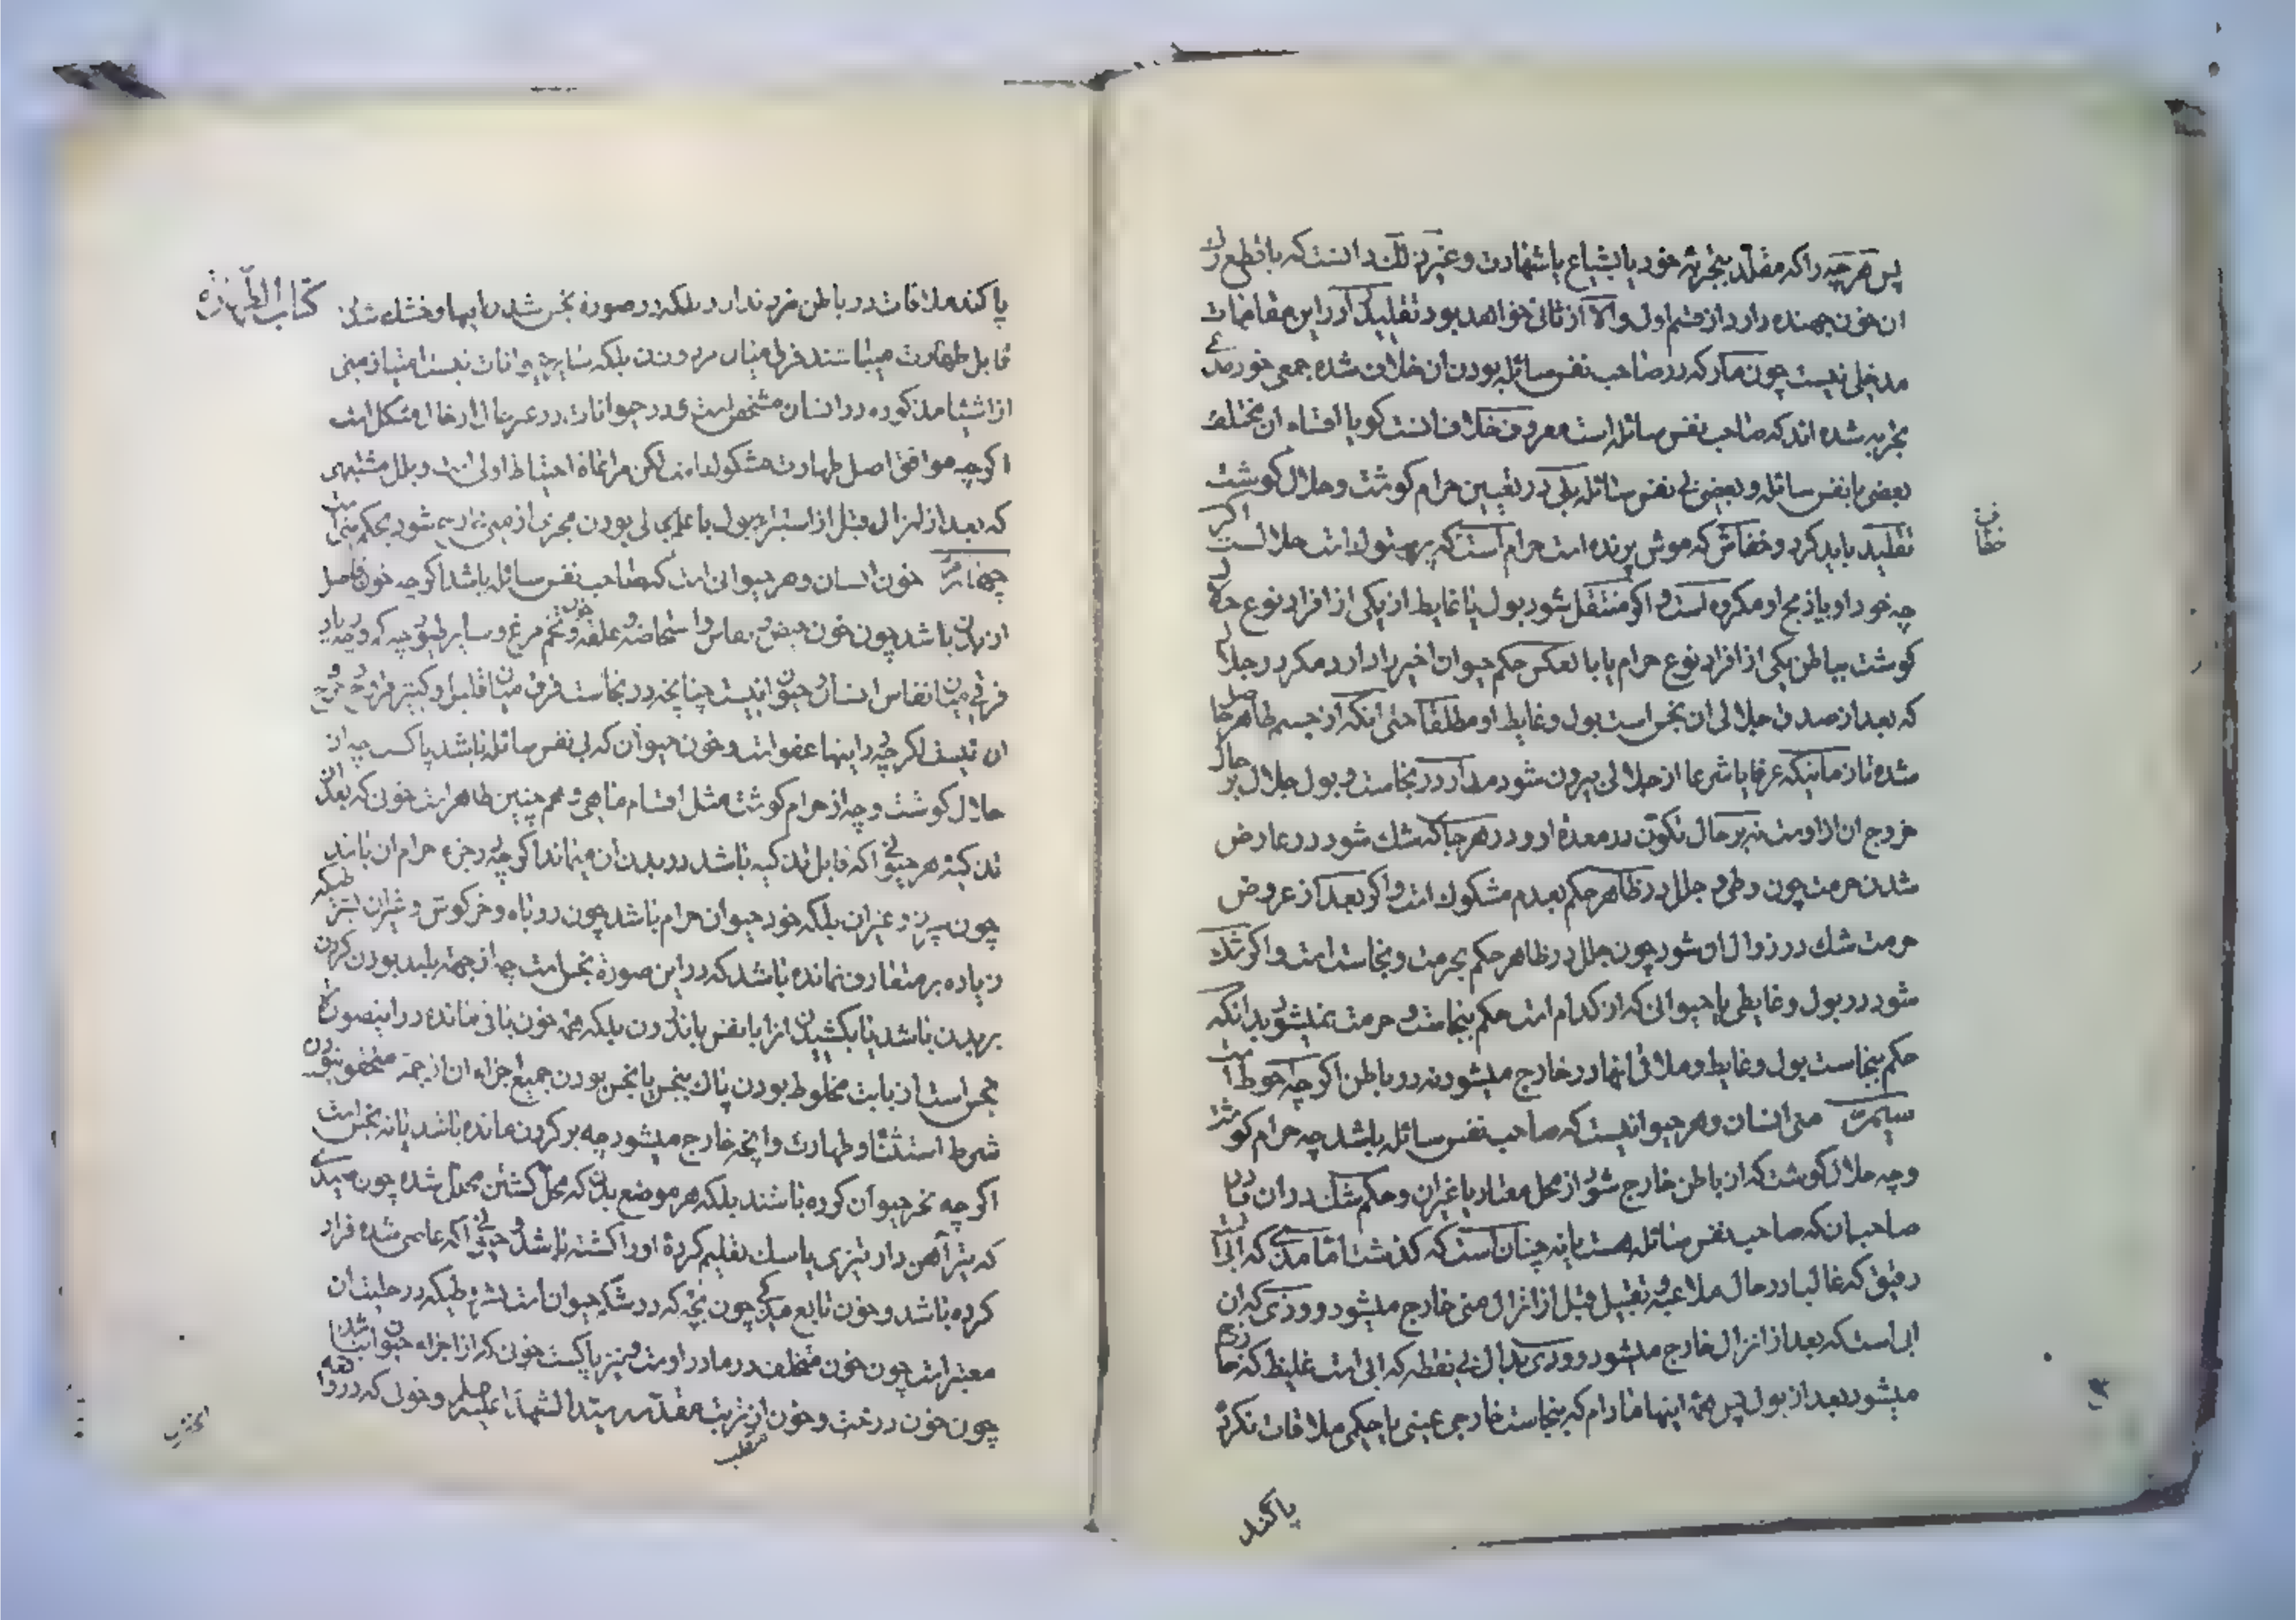 پس هرچه را که مقلد بتجربه خود یا بشیاع یا شهادت و غیر ذلک دانست که با قطع رک
ان خون جهنده دارد از قسم اول والا از ثانی خواهد بود تقلید را در این مقامات
مدخلی نیست چون مار که در صاحب نفس سائله بودن ان خلاف شده جمعی خود مدعی
تجربه شده اند که صاحب نفس سائله است معروف خلاف انست کویا اقسام ان مختلف
بعضی با نفس سائله و بعضی بی نفس سائله بلی در تعیین حرام کوشت و حلال کوشت
تقلید باید کرد و خفاش که موش پرنده است حرام است که پرستو است حلالست اکر
چه خود او یا ذبح او مکروه است و اکر منتقل شود بول یا غایط از یکی از افراد نوع حلال
کوشت بباطن یکی از افراد نوع حرام یا بالعکس حکم حیوان اخیر را دارد مکر در جلال
که بعد از صدق جلالی ان نجس است بول و غایط او مطلقا حتی انکه از جسم طاهر حاصل
شده تا زمانیکه عرفا یا شرعا از جلالی بیرون شود مدار در نجاست بول جلال بر حال
خروج ان از اوست نه بر حال تکون در معده او و در هرجا که شک شود در عارض
شدن حرمت چون وطی و جلل در ظاهر حکم بعدم مشکوک است و اکر بعد از عروض
حرمت شک در زوال ان شود چون جلل در ظاهر حکم بحرمت و نجاست است و اکر شک
شود در بول و غایطی یا حیوانی که از کدام است حکم بنجاست و حرمت نمیشود بدانکه
حکم بنجاست بول و غایط و ملاقی انها در خارج میشود نه در باطن اکرچه احوط است
سیم منی انسان و هر حیوانیست که صاحب نفس سائله باشد چه حرام کوشت
و چه حلال کوشت که از باطن خارج شود از محل معتاد یا غیر ان و حکم شک در ان
صاحب ان که صاحب نفس سائله هست یا نه چنان است که کذشت اما مذی که ابی است
رقیق که غالبا در حال ملاعبه و تقبیل قبل از انزال منی خارج میشود و وذی که ان
ابی است که بعد از انزال خارج میشود و ودی بدال بی نقطه که ابی است غلیظ که خارج
میشود بعد از بول پس همه اینها مادام که بنجاست خارجی عینی یا حکمی ملاقات نکرده
پاکند
پاکند ملاقات در باطن ضرر ندارد بلکه در صورة نجس شدن اینها و خشک شدن
کتاب الطهارة
قابل طهارت میباشند فرقی میان مرد و زن بلکه سایر حیوانات نیست امتیاز منی
از اشیا مذکوره در انسان مشخص است و در حیوانات در غیر حال ادخال مشکل است
اکرچه موافق اصل طهارت مشکوک است لکن مراعاة احتیاط اولی است و بلل مشتبهی
که بعد از انزال قبل از استبراء ببول یا علم بخالی بودن مجری از منی خارج میشود بحکم منی است
چهارم خون انسان و هر حیوانی است که صاحب نفس سائله باشد اکرچه خون فاضل
از بدن باشد چون خون حیض و نفاس و استحاضه و علقه و خون تخم مرغ و سایر طیور چه که و چه زیاد
فرقی میان انفاس انسان و حیوان نیست چنانچه در نجاست فرق میان قلیل و کثیر
ان نیست اکرچه در اینها عفو است و خون حیوان که بی نفس سائله باشد پاکست چه از
حلال کوشت و چه از حرام کوشت مثل اقسام ماهی و همچنین طاهر است خون که بعد از
تذکیه هر حیوانی که قابل تذکیه باشد در بدن ان میماند اکرچه در جزء حرام ان باشد
چون سپرز و غیر ان بلکه خود حیوان حرام باشد چون روباه و خرکوش و شیران بشرطیکه
زیاده بر متعارف نمانده باشد که در این صورة نجس است چه از جهة بلند بودن کردن
بریدن باشد یا بکشیدن انرا با نفس باندرون بلکه همه خون باقی مانده در اینصورت
نجس است از بابت مخلوط بودن پاک بنجس یا نجس بودن جمیع اجزاء ان از جهة متحقق نبودن
شرط استثنا و طهارت وانچه خارج میشود چه بر کردن مانده باشد یا نه نجس است
اکرچه نحر حیوان کرده باشند بلکه هر موضع بدن که محل کشتن محلل شده چون صیدی
که تیر آهن دار تیزی یا سک تعلیم کرده اورا کشته باشد و حیوانی که عاصی شده فرار
کرده باشد و خون تابع مذکی چون بچه که در شکم حیوان است بشرطیکه در حلیت ان
معتبر است چون خون متخلف در مادر اوست و نیز پاکست خون که از اجزاء حیوان نباشد
چون خون درخت و خون از تربت مقدسه سید الشهدا علیه السلام و خونی که در دوا